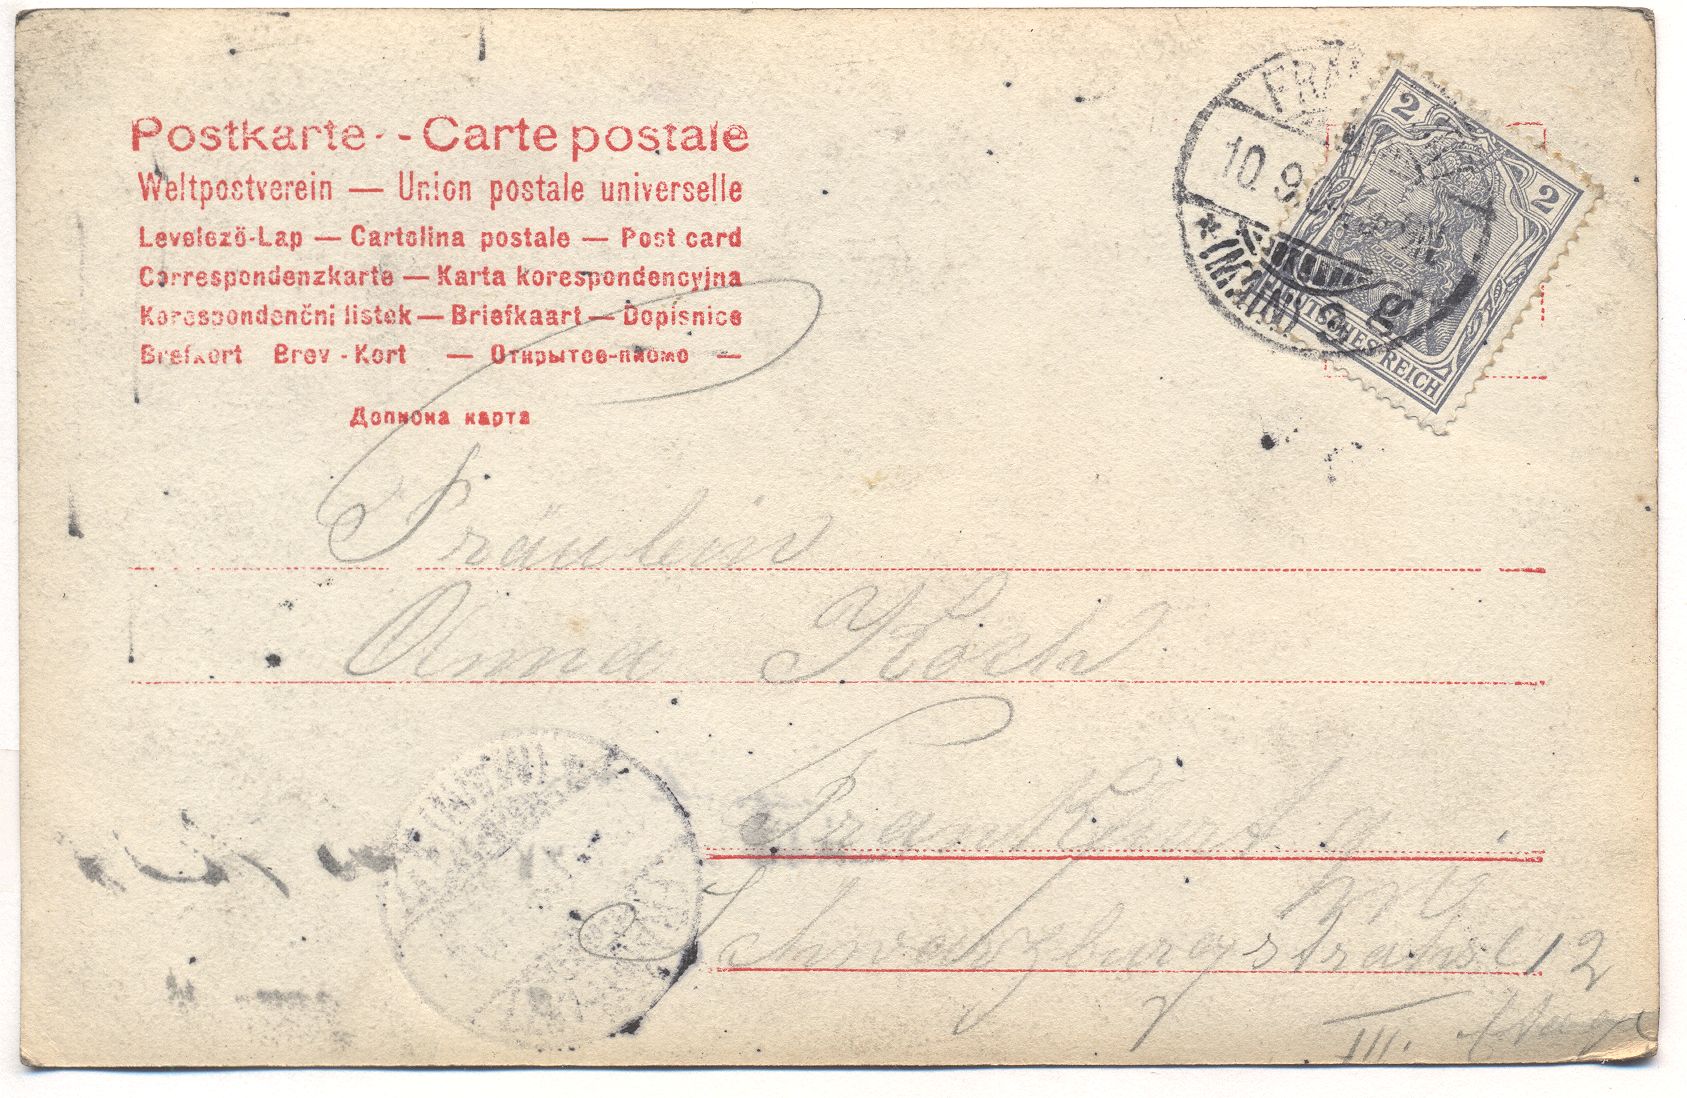 Postkarte - Carte postale
Weltpostverein — Union postale universelle
Levelező-Lap — Cartolina postale — Post card
Correspondenzkarte — Karta korespondencyjna
Korespondenčni listek — Briefkaart — Dopisnice
Brefkort Brev-Kort — Открытое-письмо —
Дописна карта
FRAN
10.9.
* (MAIN)
2
2
DEUTSCHES REICH
Fräulein
Anna Koch
Frankfurt a.
M
Schwarzburgstrahse 12
III.